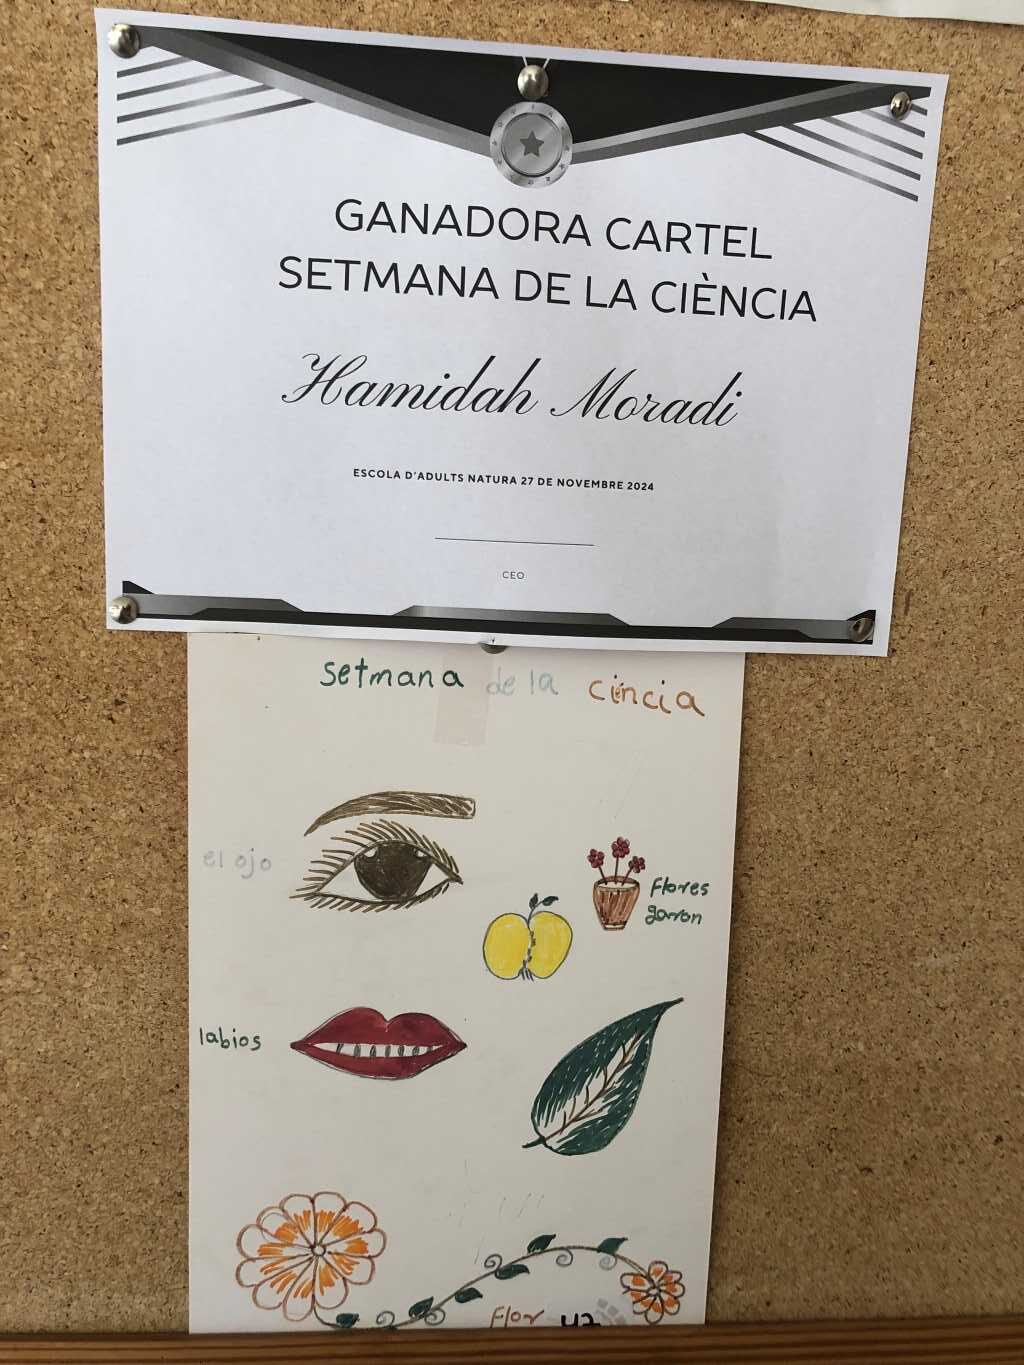 GANADORA CARTEL
SETMANA DE LA CIÈNCIA
Hamidah Moradi
ESCOLA D'ADULTS NATURA 27 DE NOVEMBRE 2024
CEO
setmana de la ciència
el ojo
flores
garron
labios
Flor